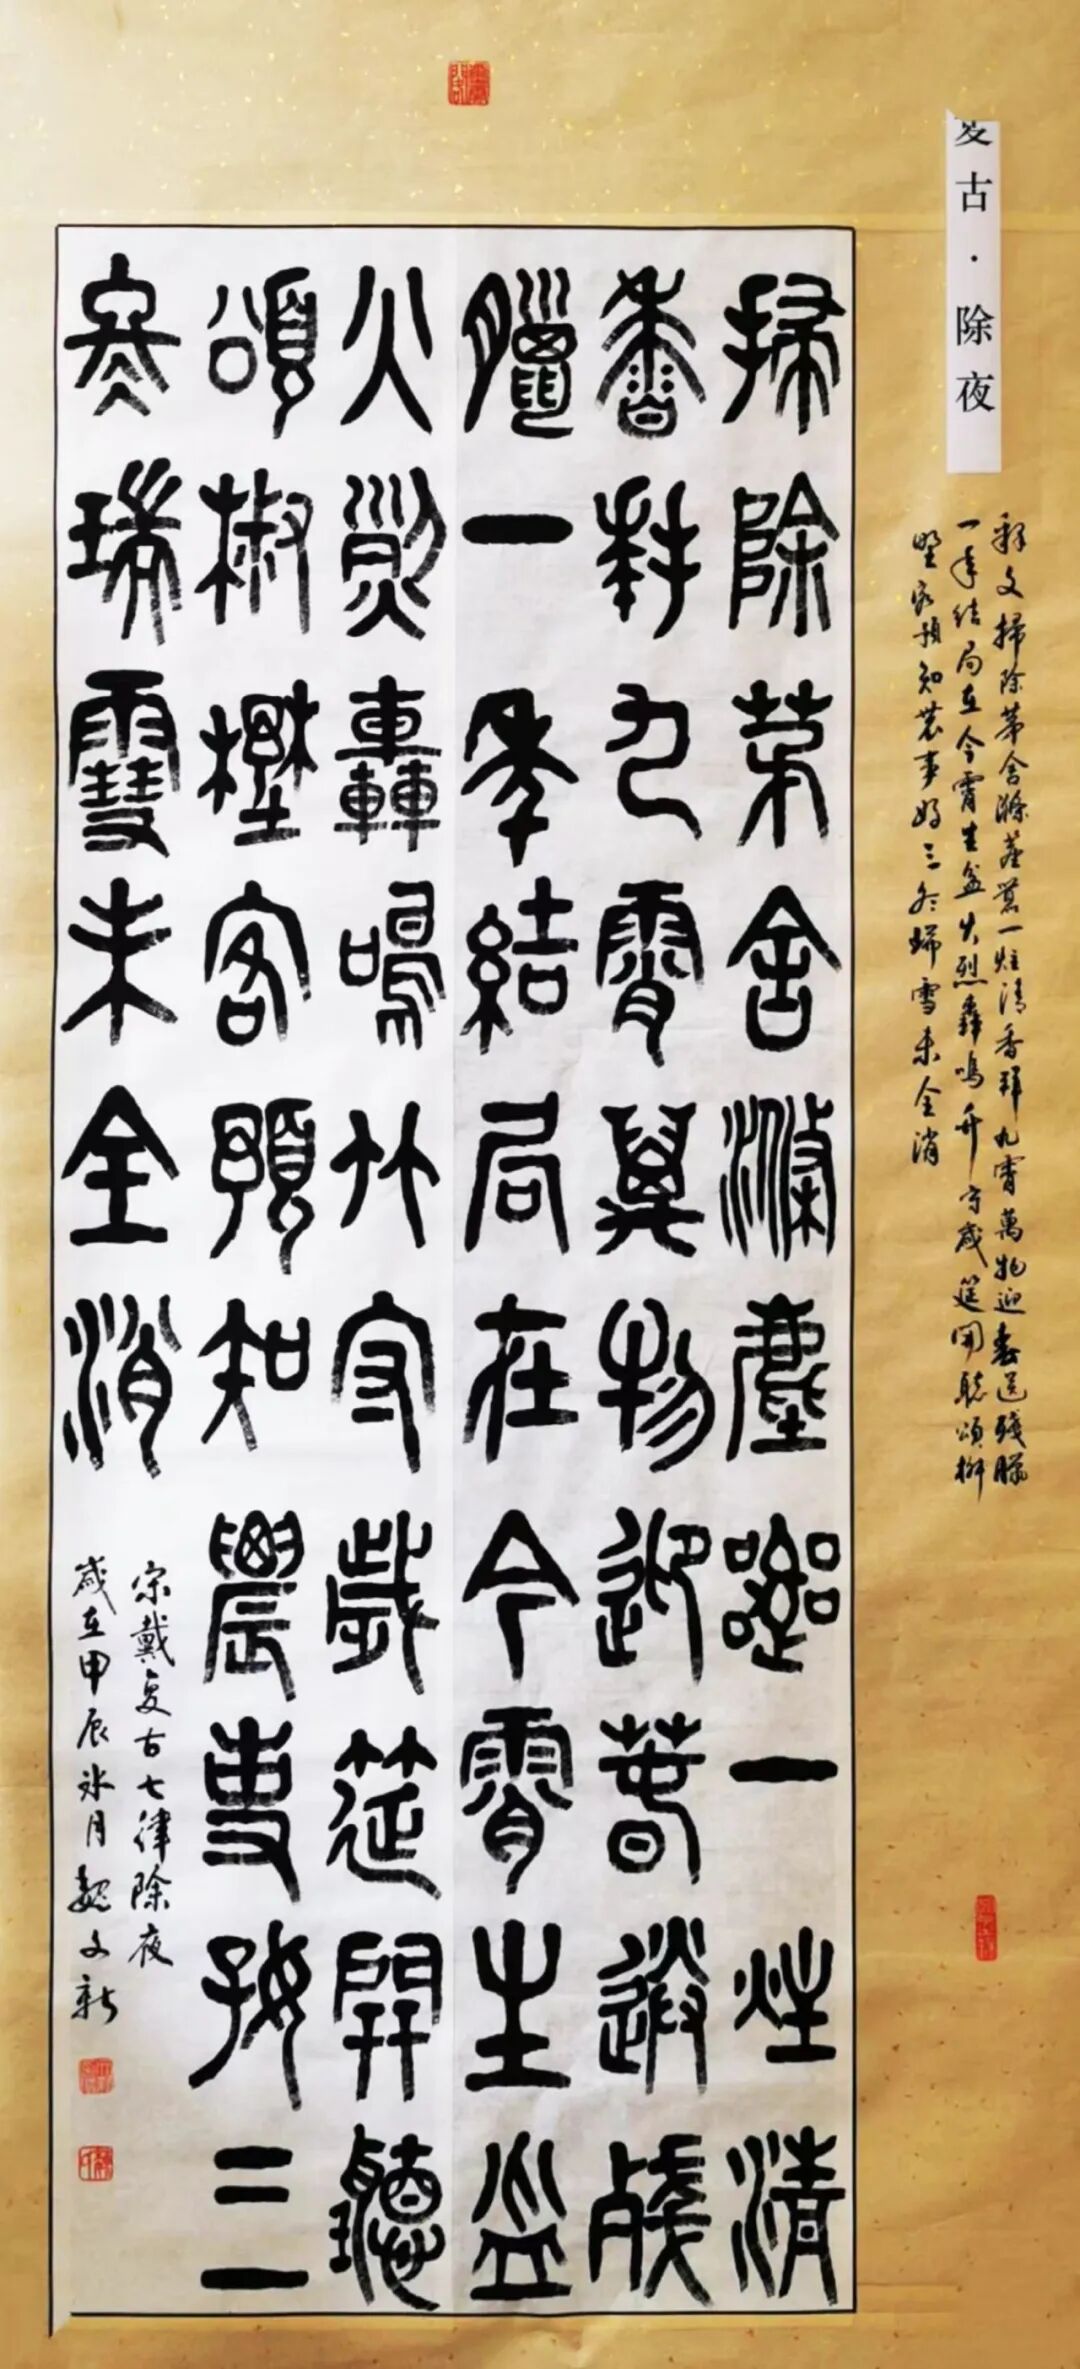 复古·除夜
釋文掃除茅舍滌塵囂一炷清香拜九霄萬物迎春送殘臘
一年结局在今霄生盆火烈轟鳴竹守歲筵開聽頌椒
野客預知農事好三冬瑞雪未全消
掃除茅舍滌塵囂一炷清
香拜九霄萬物迎春送殘
臘一年結局在今霄生盆
火烈轟鳴竹守歲筵開聽
頌椒野客預知農事好三
冬瑞雪未全消
宋戴复古七律除夜
歲在甲辰冰月魏文新